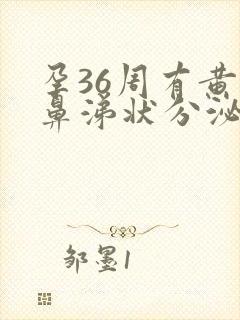 孕36周有黄
鼻涕状分泌
邹墨1